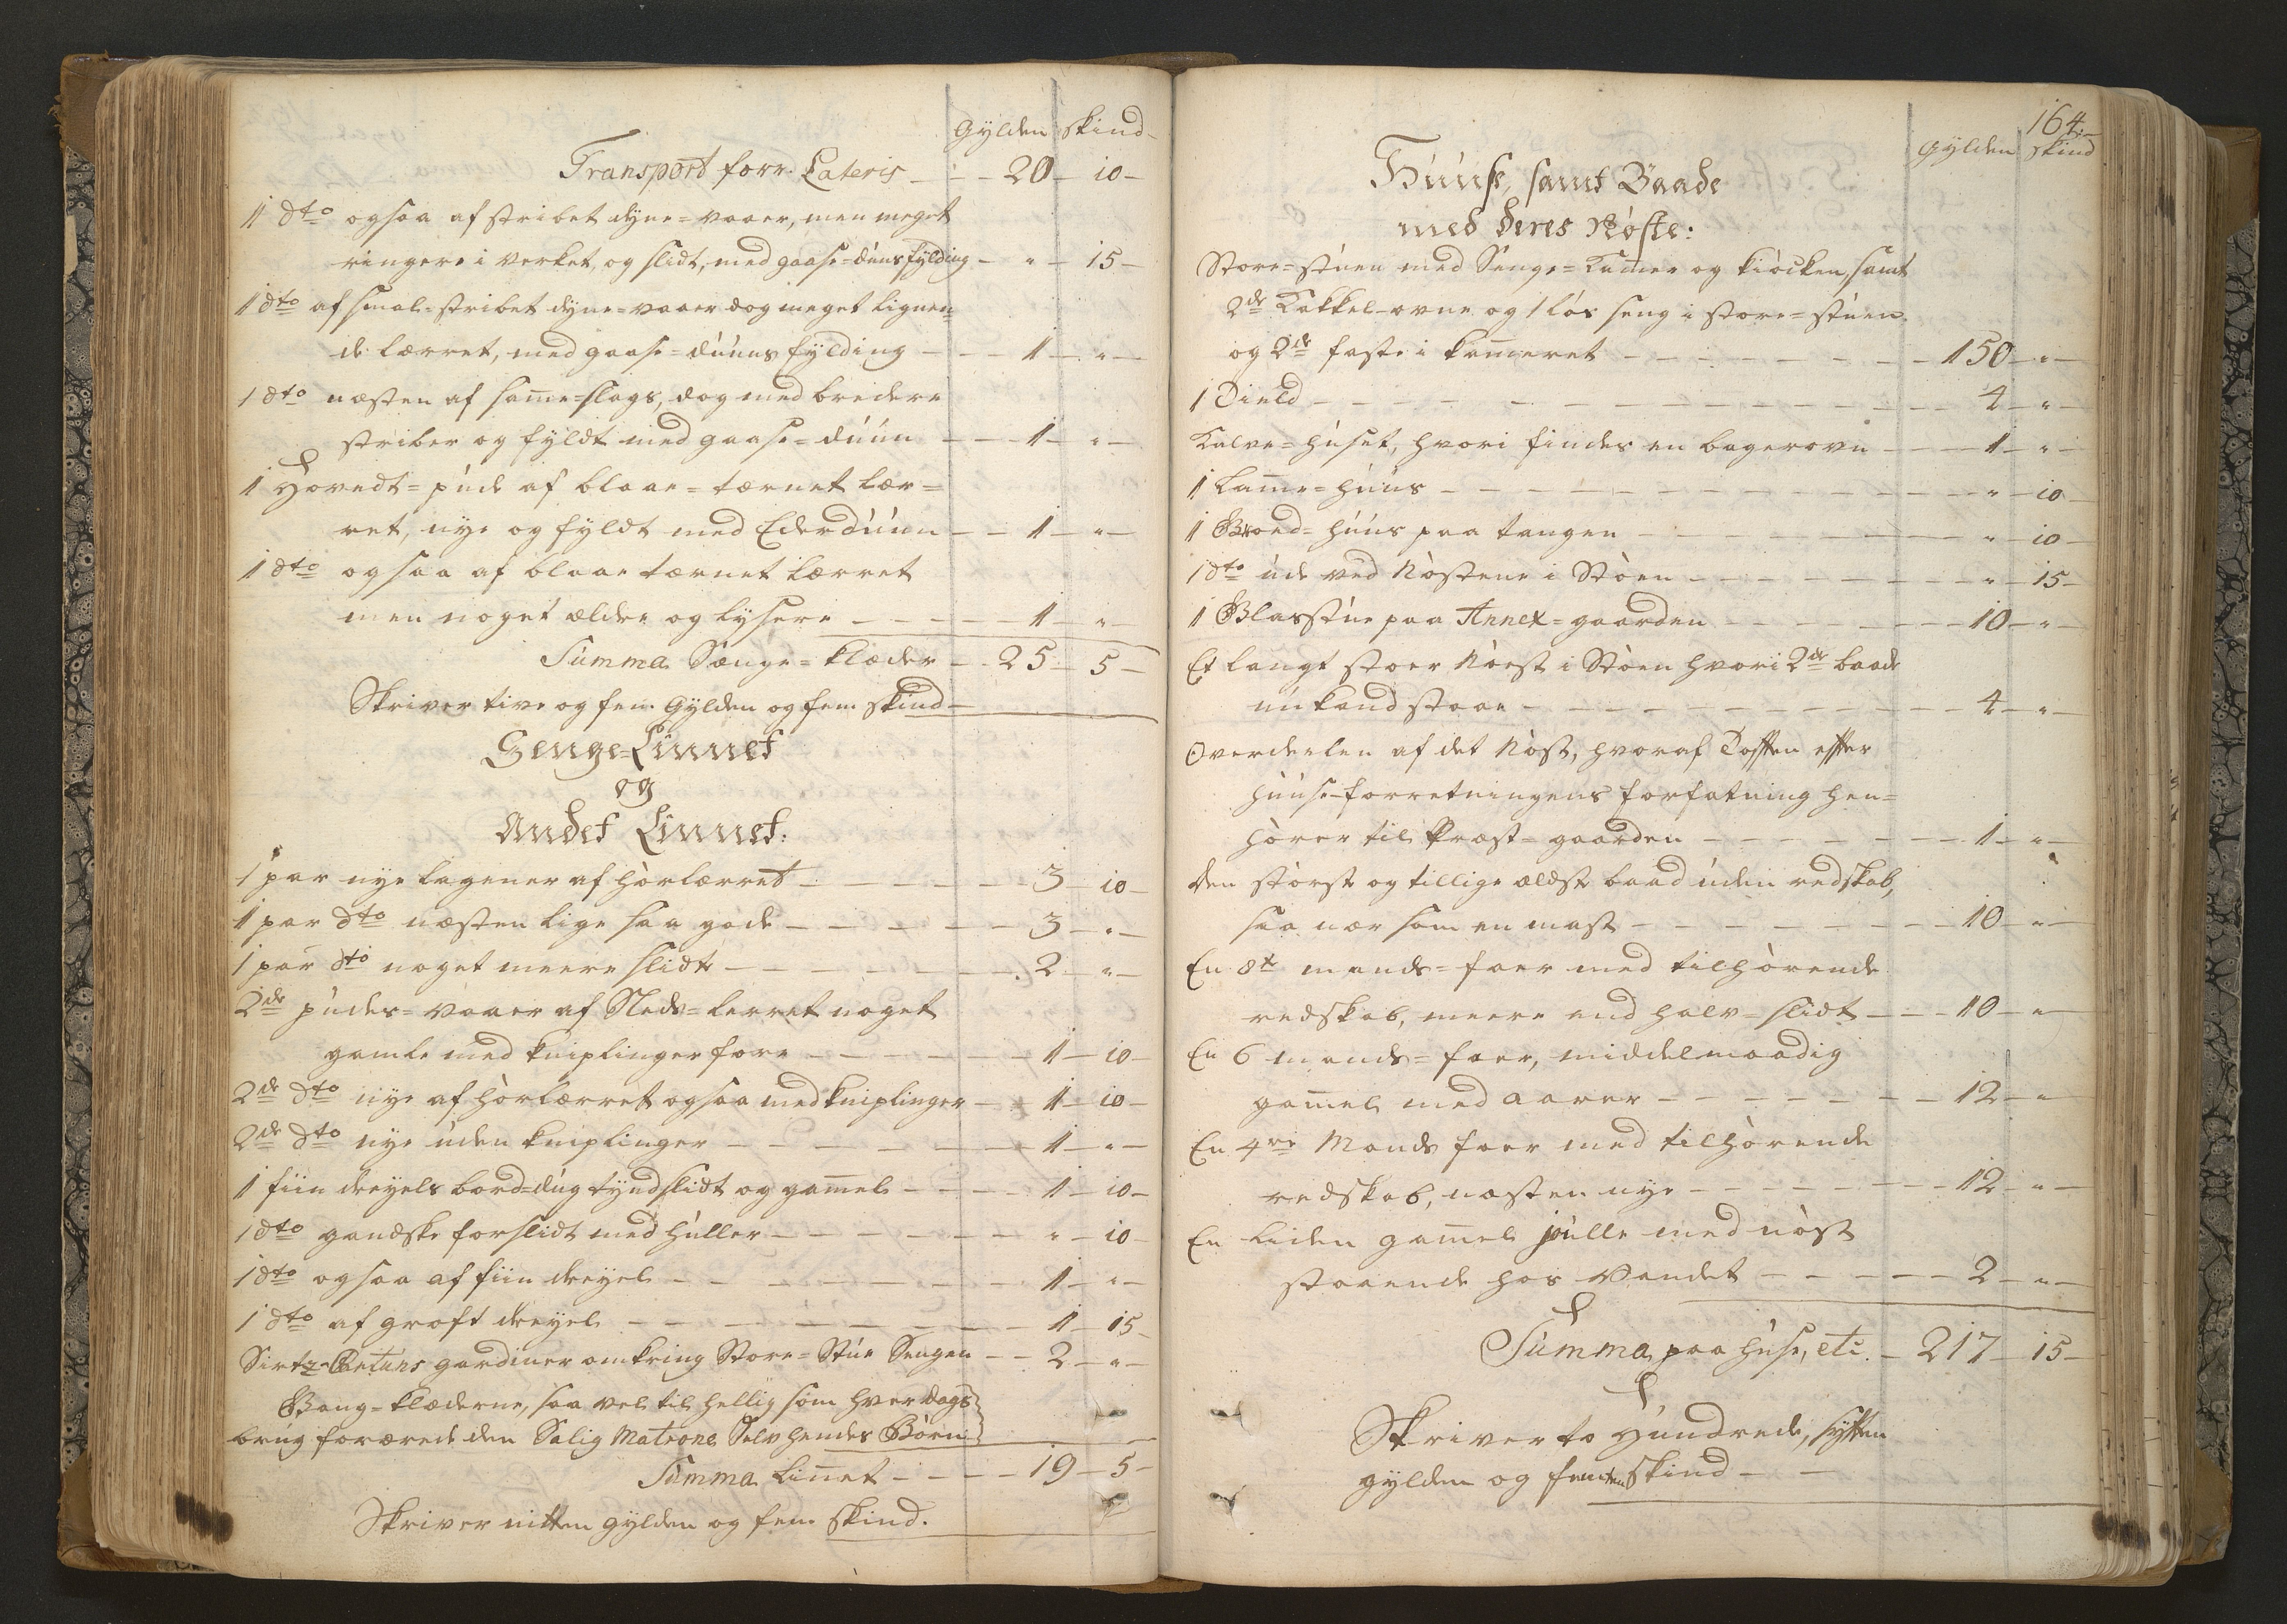 Gÿlden skind
Transport forr. Lateris — — 20 — 10 —
1 dto ogsaa af stribet dÿne=vaaer, men meget
ringere i verket, og slidt, med gaase=duuns fÿlding — " — 15 —
1 dto af smal=stribet dÿne=vaaer dog meget lignen=
de lærret, med gaase=duuns fÿlding — — 1 — " —
1 dto næsten af samme=slags, dog med bredere
striber og fÿldt med gaase=duun — — 1 — " —
1 Hovedt=pude af blaae=tærnet lær=
ret, nÿe og fÿldt med Ederduun — — 1 — " —
1 dto ogsaa af blaae tærnet lærret
men noget ældre og lÿsere — — — 1 — " —
Summa Sænge=klæder — 25 — 5 —
Skriver tive og fem Gÿlden og fem skind —
Senge=Linnet
og
Andet Linnet:
1 par nÿe lagener af hörlærret — — — — 3 — 10 —
1 par dto næsten lige saa gode — — — — 3 — " —
1 par dto noget meere slidt — — — — — 2 — " —
2de pudes=vaaer af Sleds=lerret noget
gamle med kniplinger fore — — — — 1 — 10 —
2de dto nÿe af hörlærret ogsaa med kniplinger — — 1 — 10 —
2de dto nÿe uden kniplinger — — — — — 1 — " —
1 fiin dreÿels bord=dug tÿndslidt og gammel — — — 1 — 10 —
1 dto gandske forslidt med huller — — — — — " — 10 —
1 dto ogsaa af fiin dreÿel — — — — — — 1 — " —
1 dto af groft dreÿel — — — — — — — 1 — 15 —
Sirtz=Cattuns gardiner omkring Store=Stue Sengen — — 2 — " —
Gang=klæderne, saa vel til hellig som hverdags
brug forærede den Salig Matrone Selv hendes Börn
Summa linnet — — — — 19 — 5 —
Skriver nitten gÿlden og fem skind.
164.
Gÿlden skind
Huuse, samt Baade
med deres Nöste:
Store=stuen med Senge=Kamer og kiöcken, samt
2de Kakkel=ovne og 1 lös seng i store=stuen
og 2de faste i kammeret — — — — — — — 150 — " —
1 Dield — — — — — — — — — — — 4 — " —
Kalve=huset, hvori findes en bagerovn — — — 1 — " —
1 Lamme=huus — — — — — — — — — — " — 10 —
1 Broed=huus paa tangen — — — — — — — " — 10 —
1 dto ude ved Nöstene i Stöen — — — — — — " — 15 —
1 Glasstue paa Annex=gaarden — — — — — — 10 — " —
Et langt stoer Nöst i Stöen hvori 2de baade
nu kand staae — — — — — — — — — 4 — " —
Overdeelen af det Nöst, hvoraf Tofften effter
huuse=forretningens forfatning hen=
hörer til Præst=gaarden — — — — — — 1 — " —
den störste og tillige ældste baad uden redskab,
saa nær som en mast — — — — — — — 10 — " —
En 8te mands=faer med tilhörende
redskab, meere end halv=slidt — — — 10 — " —
En 6 mands=faer, middelmaadig
gammel med aarer — — — — — — — 12 — " —
En 4re Mands faer med tilhörende
redskab, næsten nÿe — — — — — — — 12 — " —
En liden gammel julle med nöst
staaende hos Vandet — — — — — 2 — " —
Summa paa huse, etc. — 217 — 15 —
Skriver to Hundrede, sÿtten
gÿlden og femten skind — —